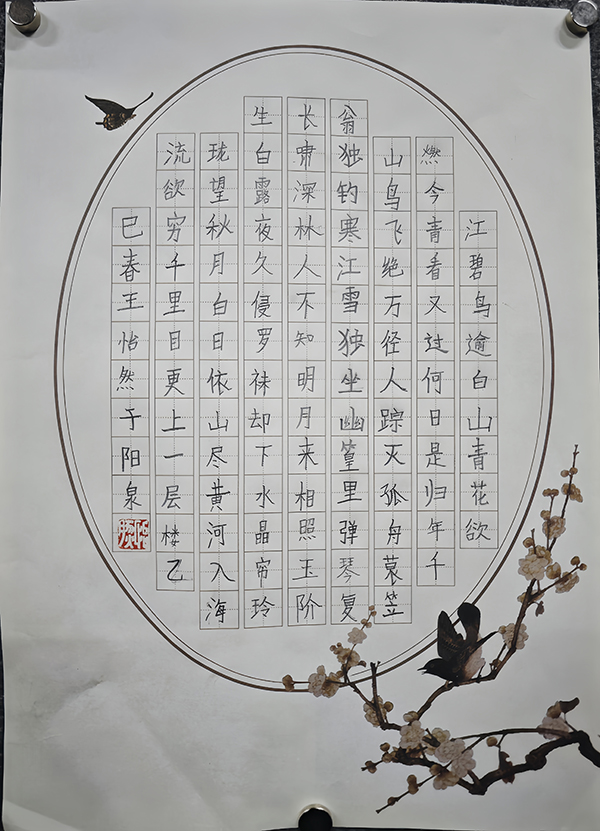 江碧鸟逾白山青花欲
燃今青看又过何日是归年千
山鸟飞绝万径人踪灭孤舟蓑笠
翁独钓寒江雪独坐幽篁里弹琴复
长啸深林人不知明月来相照玉阶
生白露夜久侵罗袜却下水晶帘玲
珑望秋月白日依山尽黄河入海
流欲穷千里目更上一层楼乙
巳春王怡然于阳泉